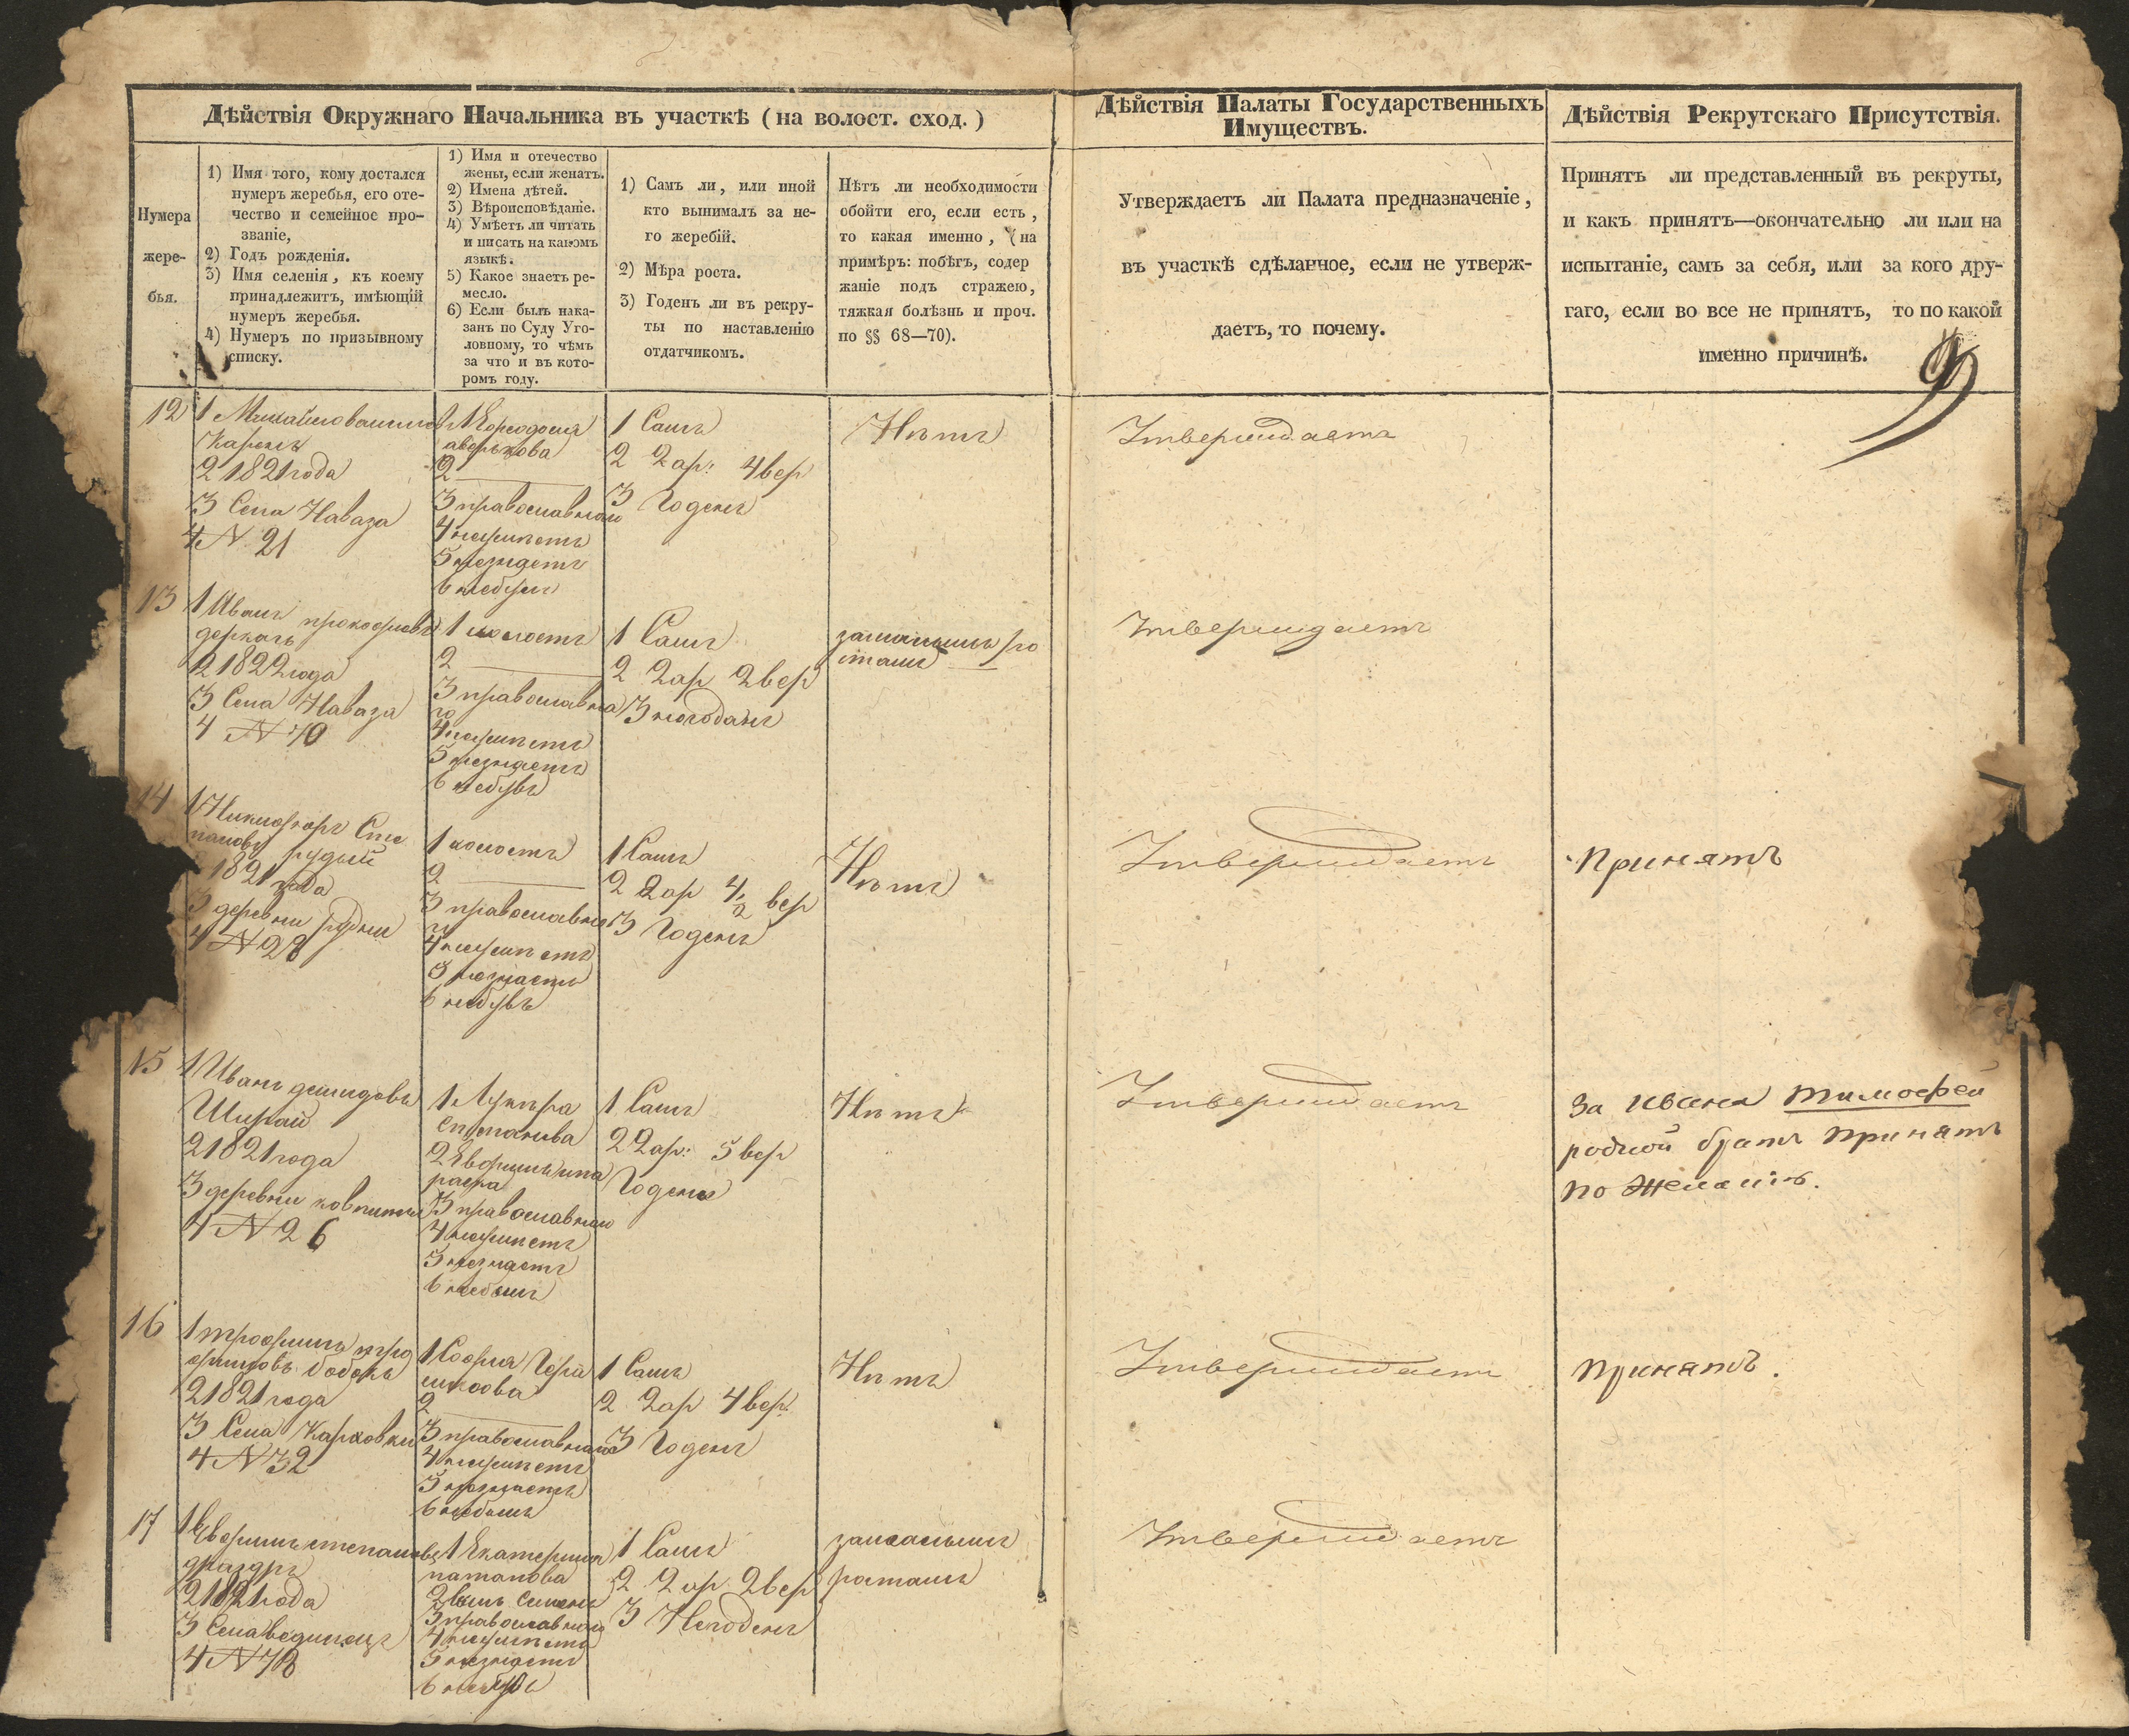 Дѣйствія Окружнаго Начальника въ участкѣ (на волост. сход.)
Нумера
жере-
бья.
1) Имя того, кому достался
нумеръ жеребья, его оте-
чество и семейное про-
званіе,
2) Годъ рожденія.
3) Имя селенія, къ коему
принадлежитъ, имѣющій
нумеръ жеребья.
4) Нумеръ по призывному
списку.
1) Имя и отечество
жены, если женатъ.
2) Имена дѣтей.
3) Вѣроисповѣданіе.
4) Умѣетъ ли читать
и писать на какомъ
языкѣ.
5) Какое знаетъ ре-
месло.
6) Если былъ нака-
занъ по Суду Уго-
ловному, то чѣмъ
за что и въ кото-
ромъ году.
1) Самъ ли, или иной
кто вынималъ за не-
го жеребій.
2) Мѣра роста.
3) Годенъ ли въ рекру-
ты по наставленію
отдатчикомъ.
Нѣтъ ли необходимости
обойти его, если есть,
то какая именно, (на
примѣръ: побѣгъ, содер
жаніе подъ стражею,
тяжкая болѣзнь и проч.
по §§ 68—70).
Дѣйствія Палаты Государственныхъ
Имуществъ.
Утверждаетъ ли Палата предназначеніе,
въ участкѣ сдѣланное, если не утверж-
даетъ, то почему.
Дѣйствія Рекрутскаго Присутствія.
Принятъ ли представленный въ рекруты,
и какъ принятъ—окончательно ли или на
испытаніе, самъ за себя, или за кого дру-
гаго, если во все не принятъ, то по какой
именно причинѣ.
9
12
2 1821 года
3 Села Наваза
4 N 21
2
3 православного
4 неумѣетъ
5 незнаетъ
6 небылъ
1 Самъ
2 2 ар: 4 вер
3 Годенъ
Нѣтъ
Утверждаетъ
13
1 Иванъ прокофіевъ
деркачь
2 1822 года
3 Села Наваза
4 N 70
1 холостъ
2
3 православна
го
4 неумѣетъ
5 незнаетъ
6 небувъ
1 Самъ
2 2 ар 2 вер
3 негоданъ
замалымъ ро
стамъ
Утверждаетъ
14
1 Никифоръ Сте
пановъ рудый
1821 года
3 деревни рудни
4 N 28
1 холостъ
2
3 православно
го
4 неумѣетъ
5 незнаетъ
6 небувъ
1 Самъ
2 2 ар 4 1/2 вер
3 Годенъ
Нѣтъ
Утверждаетъ
Принятъ
15
1 Иванъ демидовъ
Ширай
2 1821 года
3 деревни
4 N 26
1
степанова
2
3 православного
4 неумѣетъ
5 незнаетъ
6 небылъ
1 Самъ
2 2 ар: 5 вер
Годенъ
Нѣтъ
Утверждаетъ
За Ивана Тимофей
родной братъ принятъ
по желанію.
16
1 трофимъ тро
фимовъ бобокъ
2 1821 года
3 Села Карховки
4 N 32
1 София
2
3 православного
4 неумѣетъ
5 незнаетъ
6 небылъ
1 Самъ
2 2 ар 4 вер:
3 Годенъ
Нѣтъ
Утверждаетъ
Принятъ.
17
1 Евфимъ степановъ
2 1821 года
3 Села
4 N 78
1 Екатерина
патапова
2 сынъ Семенъ
3 православного
4 неумѣетъ
5 незнаетъ
1 Самъ
2 2 ар 2 вер
3 Негоденъ
замалымъ
ростамъ
Утверждаетъ